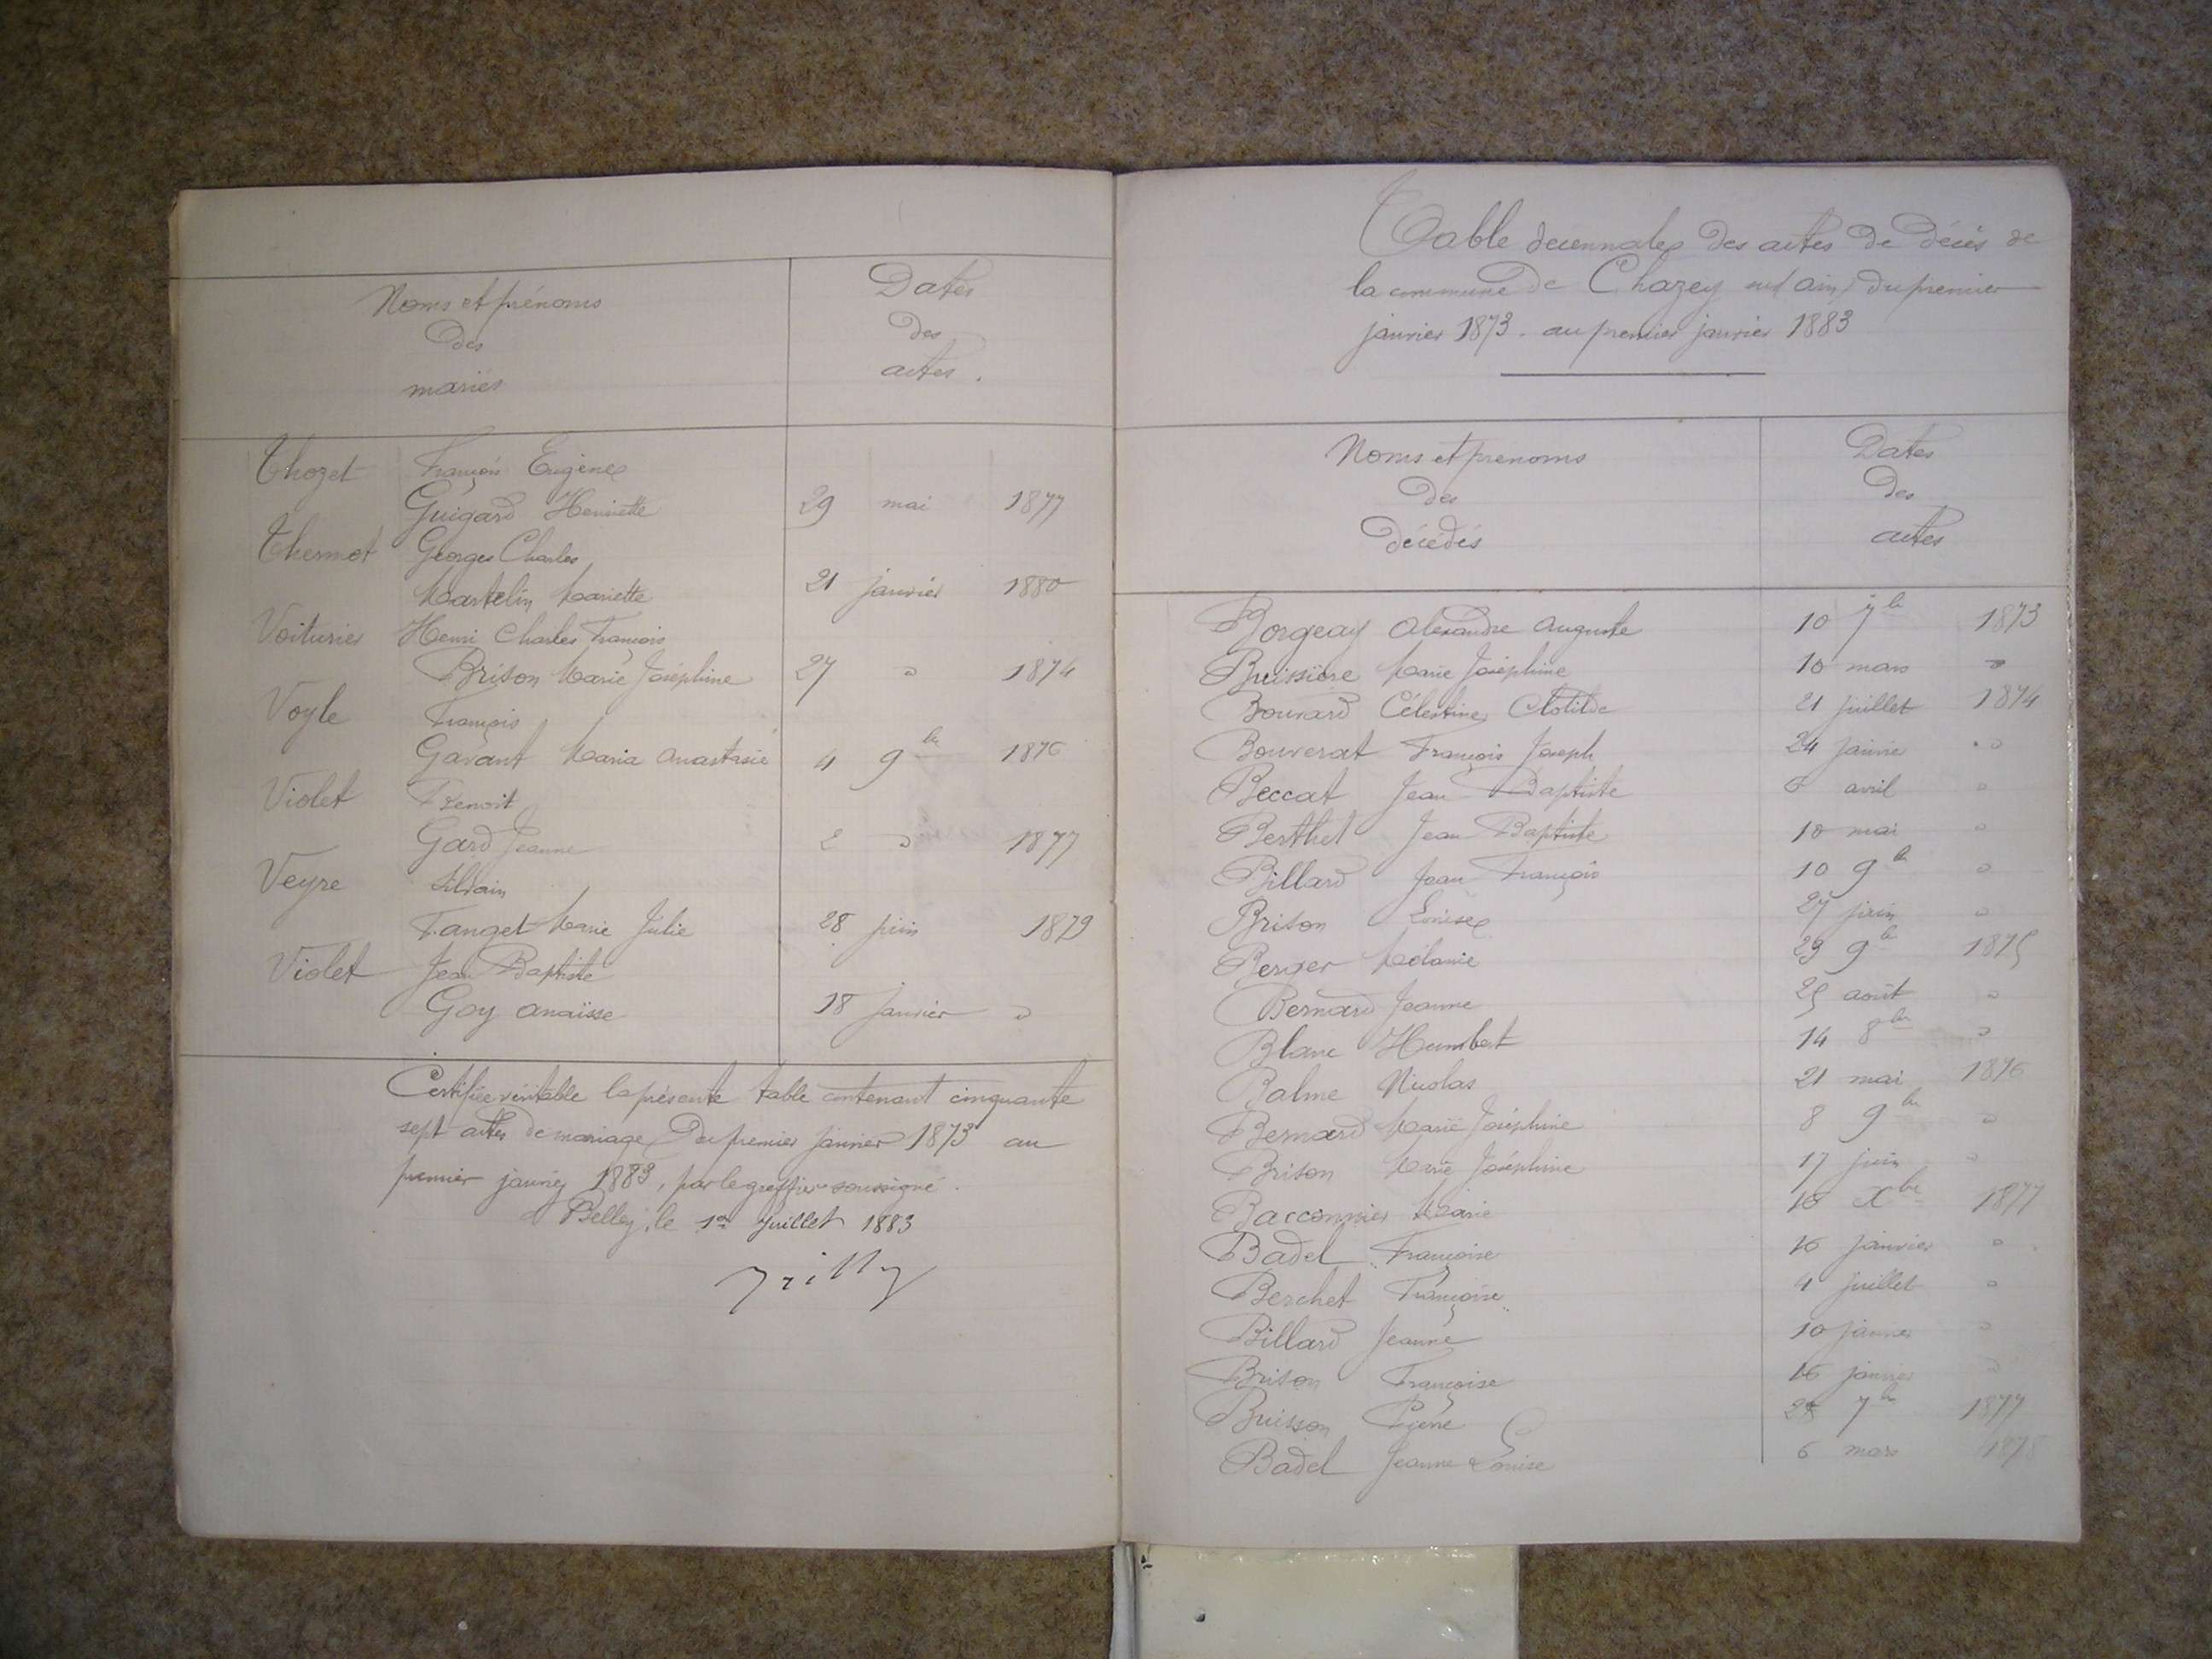 Noms et prénoms
des
mariés
Dates
des
actes.
Thozet François Eugène
Guigard Henriette 29 mai 1877
Thermot Georges Charles
Martelin Mariette 21 janvier 1880
Voiturier Henri Charles François
Brison Marie Joséphine 27 " 1874
Voyle François
Gavant Maria Anastasie 4 9bre 1876
Violet Benoit
Gard Jeanne 2 " 1877
Veyre Silvain
Tanget Marie Julie 28 juin 1879
Violet Jean Baptiste
Goy Anaïsse 18 janvier "
Certifiée véritable la présente table contenant cinquante
sept actes de mariage du premier janvier 1873 au
premier janvier 1883, par le greffier soussigné.
Belley, le 1er Juillet 1883
Table decennales des actes de décès de
la commune de Chazey sur ain, du premier
janvier 1873. au premier janvier 1883
Noms et prenoms
des
décédés
Dates
des
actes
Borgeay Alexandre Auguste 10 7bre 1873
Buissière Marie Joséphine 10 mars "
Bouvard Célestine Clotilde 21 juillet 1874
Bouverat François Joseph 24 janvier "
Beccat Jean Baptiste 6 avril "
Berthet Jean Baptiste 10 mai "
Billard Jean François 10 9bre "
Brison Louise 27 juin "
Berger Mélanie 29 9bre 1875
Bernard Jeanne 25 août "
Blanc Humbert 14 8bre "
Balme Nicolas 21 mai 1876
Bernard Marie Joséphine 8 9bre "
Brison Marie Joséphine 17 juin "
Barconnier Marie 10 Xbre 1877
Badel Françoise 16 janvier "
Berchet Françoise 4 juillet "
Billard Jeanne 10 janvier "
Brison Françoise 16 janvier "
Buisson Pierre 28 7bre 1877
Badel Jeanne Louise 6 mars 1878